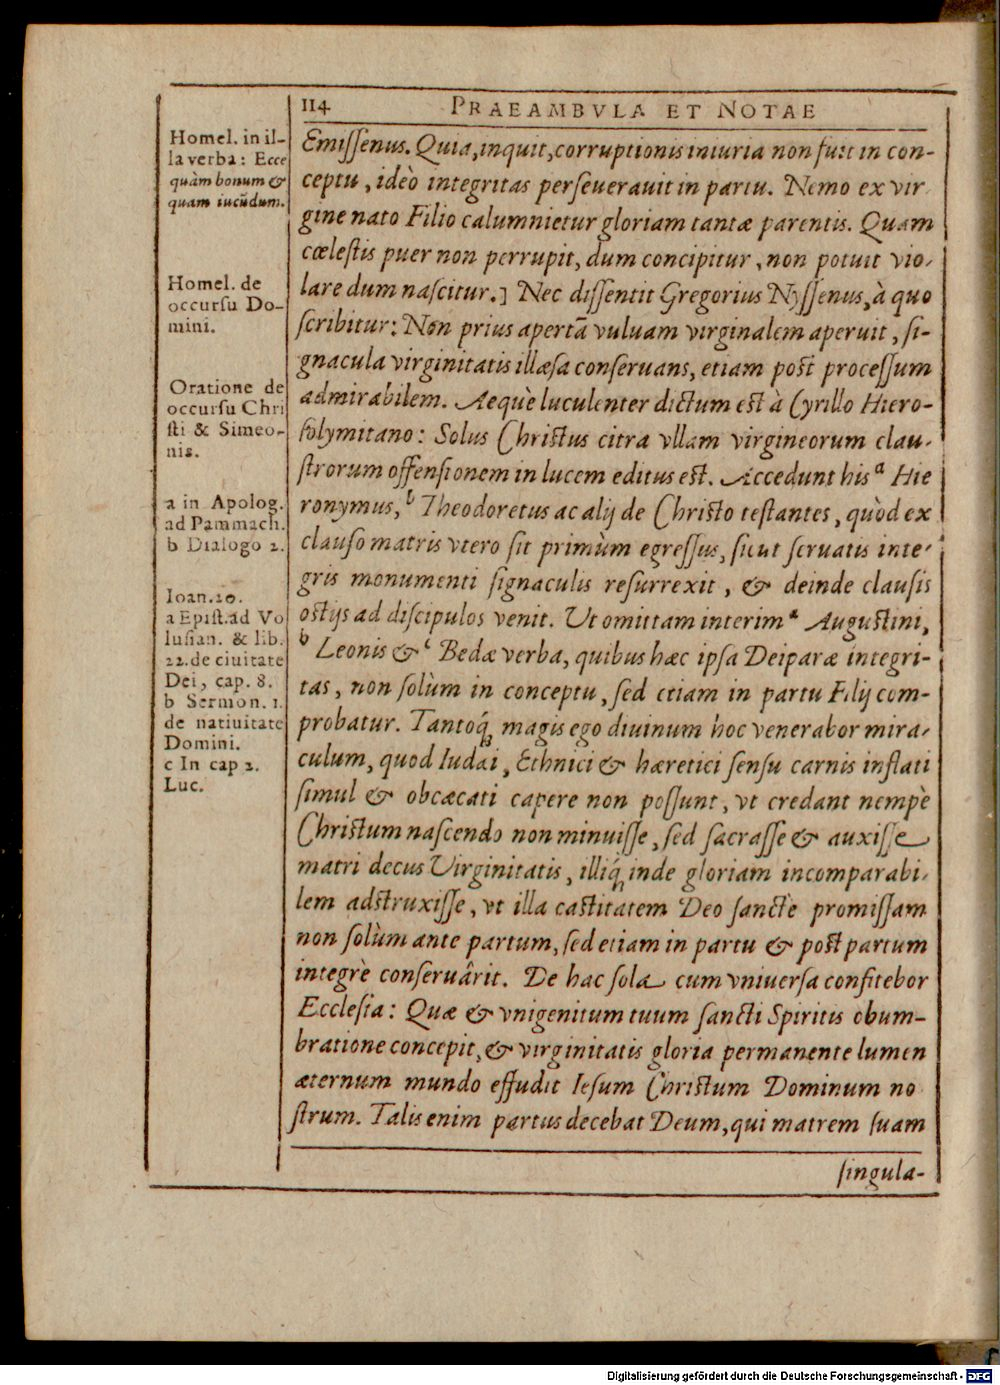 114 PRAEAMBVLA ET NOTAE
Homel. in il-
la verba: Ecce
quàm bonum &
quam iucũdum.
Homel. de
occursu Do-
mini.
Oratione de
occursu Chri
sti & Simeo-
nis.
a in Apolog.
ad Pammach.
b Dialogo 2.
Ioan. 20.
a Epist. ad Vo
lusian. & lib.
22. de ciuitate
Dei, cap. 8.
b Sermon. 1.
de natiuitate
Domini.
c In cap 2.
Luc.
Emissenus. Quia, inquit, corruptionis iniuria non fuit in con-
ceptu, ideò integritas perseuerauit in partu. Nemo ex vir
gine nato Filio calumnietur gloriam tantæ parentis. Quam
cœlestis puer non perrupit, dum concipitur, non potuit vio-
lare dum nascitur.] Nec dissentit Gregorius Nyssenus, à quo
scribitur: Non prius apertã vuluam virginalem aperuit, si-
gnacula virginitatis illæsa conseruans, etiam post processum
admirabilem. Aequè luculenter dictum est à Cyrillo Hiero-
solymitano: Solus Christus citra vllam virgineorum clau-
strorum offensionem in lucem editus est. Accedunt his a Hie
ronymus, b Theodoretus ac alij de Christo testantes, quòd ex
clauso matris vtero sit primùm egressus, sicut seruatis inte-
gris monumenti signaculis resurrexit, & deinde clausis
ostijs ad discipulos venit. Ut omittam interim a Augustini,
b Leonis & c Bedæ verba, quibus hæc ipsa Deiparæ integri-
tas, non solùm in conceptu, sed etiam in partu Filij com-
probatur. Tantoq́; magis ego diuinum hoc venerabor mira-
culum, quod Iudæi, Ethnici & hæretici sensu carnis inflati
simul & obcæcati capere non possunt, vt credant nempè
Christum nascendo non minuisse, sed sacrasse & auxisse
matri decus Virginitatis, illiq́; inde gloriam incomparabi-
lem adstruxisse, vt illa castitatem Deo sanctè promissam
non solùm ante partum, sed etiam in partu & post partum
integrè conseruârit. De hac sola cum vniuersa confitebor
Ecclesia: Quæ & vnigenitum tuum sancti Spiritis obum-
bratione concepit, & virginitatis gloria permanente lumen
æternum mundo effudit Iesum Christum Dominum no
strum. Talis enim partus decebat Deum, qui matrem suam
singula-
Digitalisierung gefördert durch die Deutsche Forschungsgemeinschaft - DFG